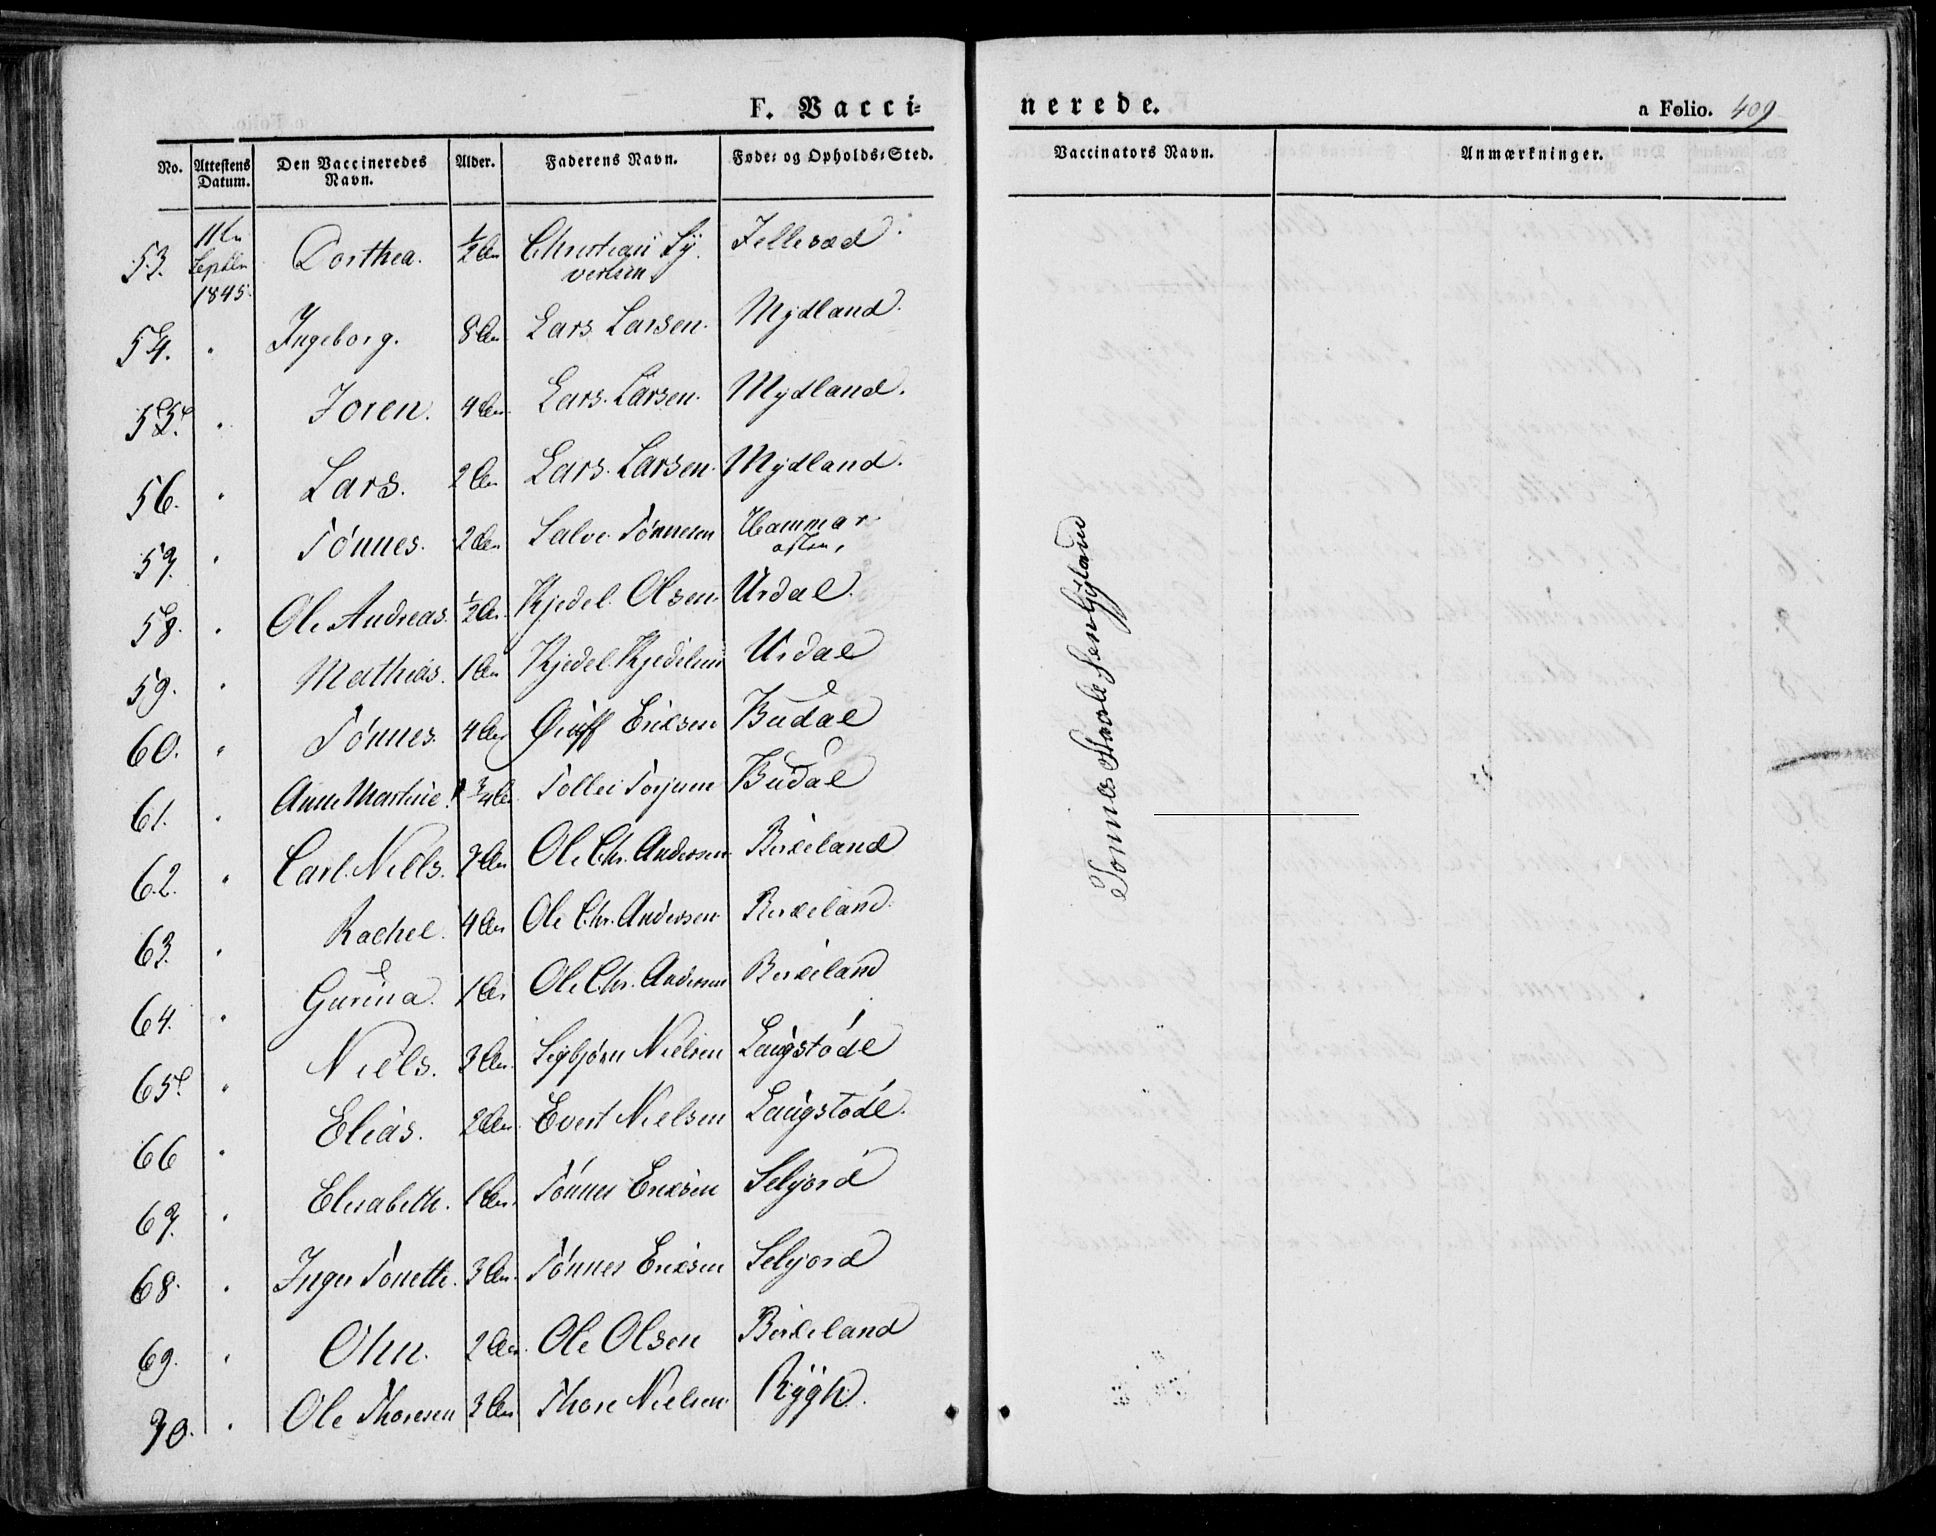 F. Vacci-
nerede.
a Folio. 409
No. Attestens Datum. Den Vaccineredes Navn. Alder. Faderens Navn. Føde- og Opholds-Sted. Vaccinators Navn. Anmærkninger.
53. 11te Septbr 1845. Dorthea. ½ Aar Christian Sÿvertsen Jellesad.
54. " Ingeborg. 8 Aar Lars Larsen. Mydland.
55. " Joren. 4 Aar. Lars Larsen. Mydland.
56. " Lars. 2 Aar Lars Larsen. Mydland.
57. " Tönnes. 2 Aar Salve Tönnesen Hammer
58. " Ole Andreas. ½ Aar. Kjedel Olsen. Urdal.
59. " Mathias. 1 Aar Kjedel Kjedelsen Urdal
60. " Tönnes. 4 Aar Eriksen Budal
61. " Anne Martine. ¾ Aar. Tollei Torjusen Budal
62. " Carl Niels. 7 Aar Ole Chr. Andersen Birkeland
63. " Rachel. 4 Aar Ole Chr. Andersen. Birkeland.
64. " Gurina. 1 Aar Ole Chr. Andersen Birkeland
65. " Niels. 3 Aar. Sigbjörn Nielsen Laugstöde
66 " Elias. 2 Aar. Evert Nielsen Laugstöde.
67. " Elisabeth. 1 Aar. Tönnes Eriksen Selyord
68. " Inger Tonette. 3 Aar. Tönnes Eriksen Selyord
69. " Olm. 2 Aar. Ole Olsen Birkeland
70. " Ole Thoresen 3 Aar Thore Nielsen. Rÿgh.
Tönnes Staalesen Gyland